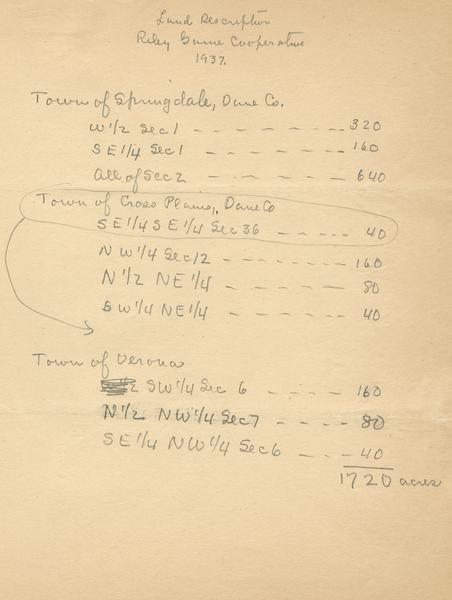 Land Description
Riley Game Cooperative
1937.
Town of Springdale, Dane Co.
W 1/2 Sec 1 - - - - - - 320
SE 1/4 Sec 1 - - - - - - 160
All of Sec 2 - - - - - 640
Town of Cross Plains, Dane Co
SE 1/4 SE 1/4 Sec 36 - - - - - 40
NW 1/4 Sec 12 - - - - - - 160
N 1/2 NE 1/4 - - - - - 80
SW 1/4 NE 1/4 - - - - - 40
Town of Verona
SW 1/4 Sec 6 - - - - 160
N 1/2 NW 1/4 Sec 7 - - - - 80
SE 1/4 NW 1/4 Sec 6 - - - 40
1720 acres